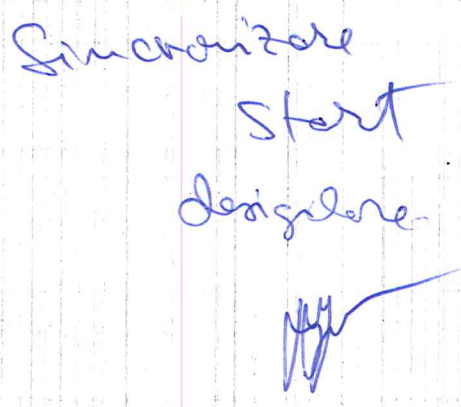 Sincronizare
Start
desigilare